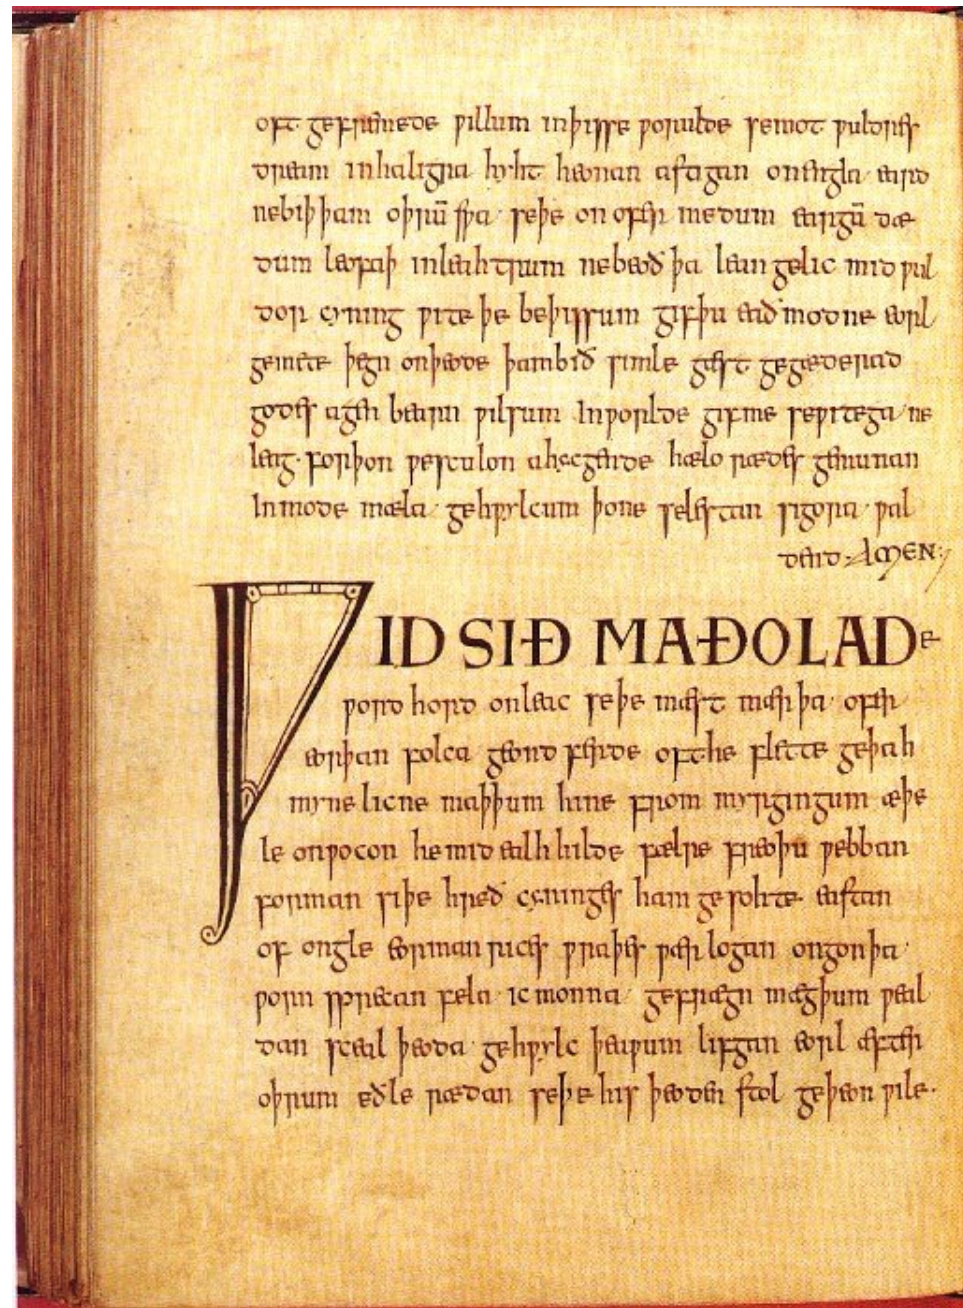 oft gefremede ƿillum inþisse ƿorulde semot ƿuldres
dream inhaligra hyht heonan astigan onengla eard
nebiþþam oþrū sƿa seþe on ofer medum eargū dæ
dum leofaþ inleahtrum nebeoð þa lean gelic mid ƿul
dor cyning ƿite þe beþissum gif þu eað modne eorl
gemete þegn onþeode þambið simle gæst gegæderad
godes agen bearn ƿilsum Inƿorlde gif me seƿitega ne
leag· forþon ƿesculon ahecgende hælo rædes gemunan
Inmode mæla gehƿylcum þone selestan sigora ƿal
dend· AMEN:
ǷIDSIÐ MAÐOLADe
ƿord hord onleac seþe mæst mærþa ofer
eorþan folca geond ferde oft he flette geþah
myne licne maþþum hine from myrgingum æþe
le onƿocon he mid ealh hilde fælre freoþu ƿebban
forman siþe hreð cyninges ham gesohte eastan
of ongle eorman rices ƿraþes ƿær logan ongon þa
ƿorn sprecan fela ic monna gefrægn mægþum ƿeal
dan sceal þeoda gehƿylc þeaƿum lifgan eorl æfter
oþrum eðle rædan seþe his þeoden stol geþeon ƿile·